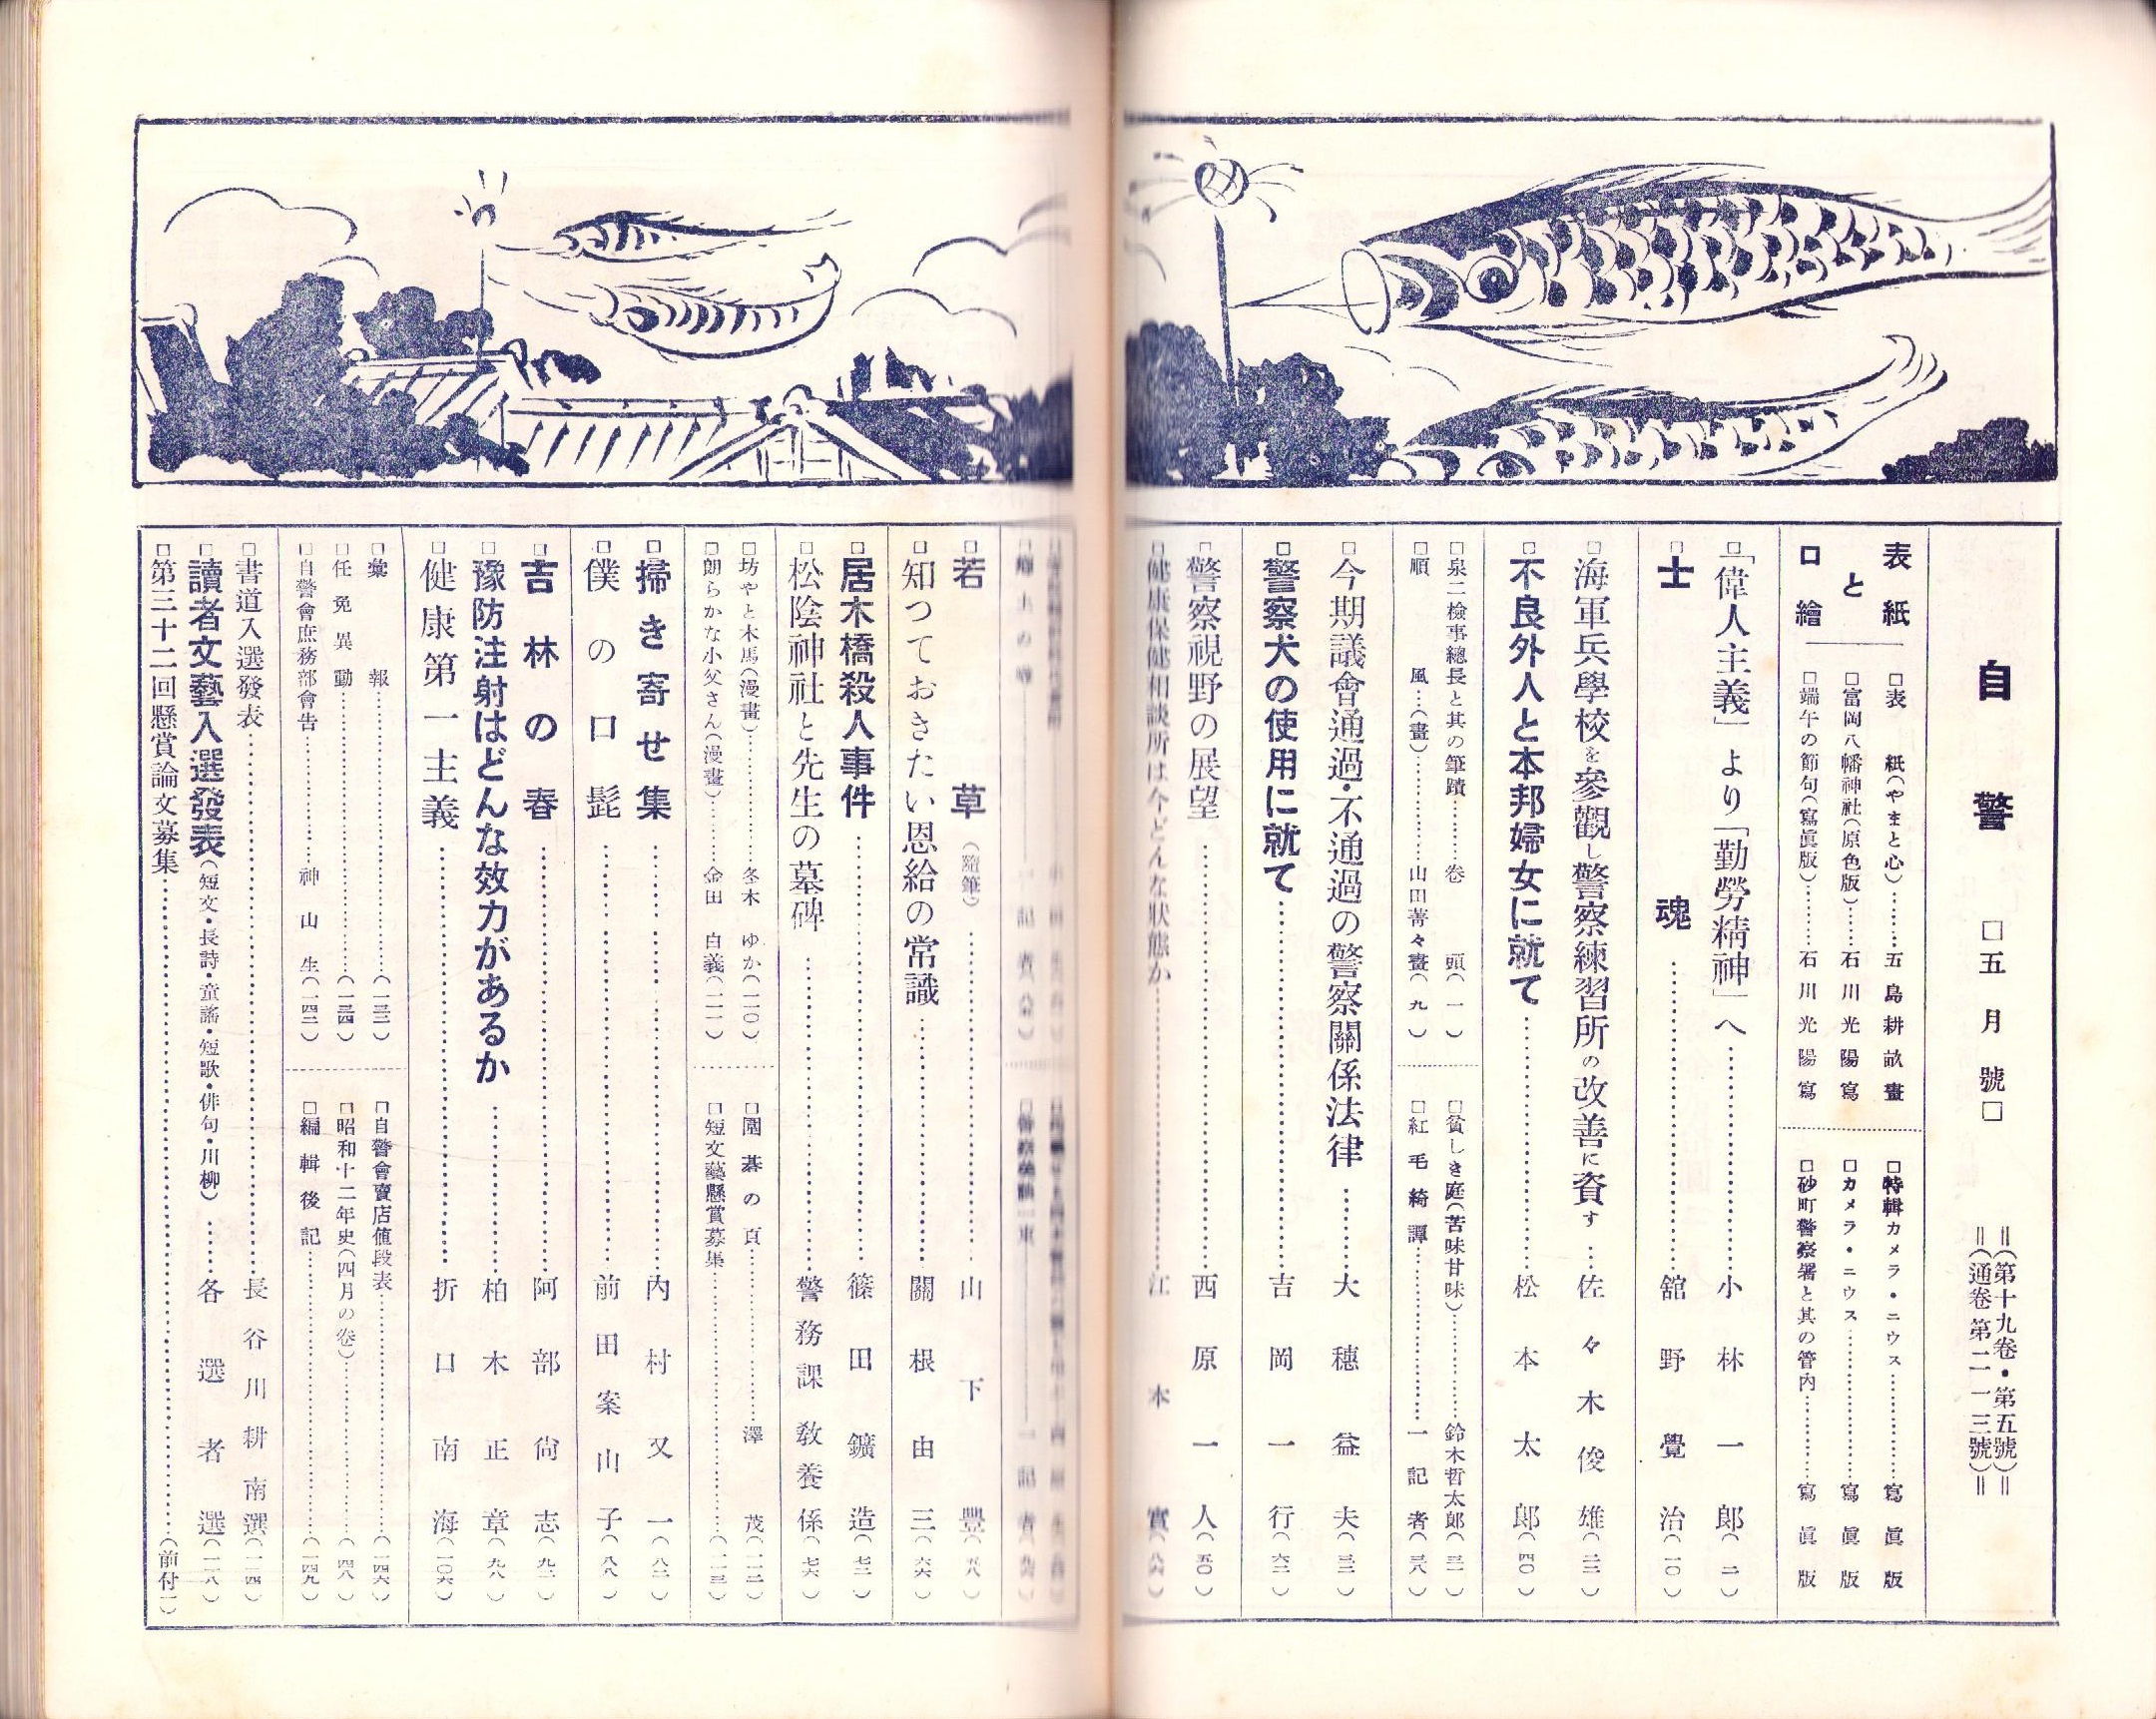 自警
□五月號□
=(第十九卷・第五號)=
=(通卷第二一三號)=
表紙と口繪
□表紙(やまと心)………五島耕畝畫
□富岡八幡神社(原色版)……石川光陽寫
□端午の節句(寫眞版)………石川光陽寫
□特輯カメラ・ニウス…………寫眞版
□カメラ・ニウス…………寫眞版
□砂町警察署と其の管内…………寫眞版
□「偉人主義」より「勤勞精神」へ…………小林一郎(二)
□士魂…………舘野覺治(一〇)
□海軍兵學校を參觀し警察練習所の改善に資す…佐々木俊雄(二二)
□不良外人と本邦婦女に就て…………松本太郎(四〇)
□泉二檢事總長と其の筆蹟………卷頭(一)
□順風…(畫)…………山田菁々畫(九)
□貧しき庭(苦味甘味)…………鈴木哲太郎(三一)
□紅毛綺譚…………一記者(三八)
□今期議會通過・不通過の警察關係法律………大穗益夫(三二)
□警察犬の使用に就て…………吉岡一行(六二)
□警察視野の展望…………西原一人(五〇)
□健康保健相談所は今どんな狀態か…………江本實(八六)
□若草(隨筆)…………山下豐(五八)
□知つておきたい恩給の常識…………關根由三(六六)
□居木橋殺人事件…………篠田鑛造(七二)
□松陰神社と先生の墓碑…………警務課敎養係(七六)
□坊やと木馬(漫畫)…………冬木ゆか(一一〇)
□朗らかな小父さん(漫畫)………金田白義(一一一)
□圍碁の頁…………澤茂(一一二)
□短文藝懸賞募集…………(一一三)
□掃き寄せ集…………内村又一(八二)
□僕の口髭…………前田案山子(八八)
□吉林の春…………阿部尙志(九二)
□豫防注射はどんな效力があるか…………柏木正章(九八)
□健康第一主義…………折口南海(一〇六)
□彙報…………(一三二)
□任免異動…………(一三四)
□自警會庶務部會告…………神山生(一四二)
□自警會賣店値段表…………(一四六)
□昭和十二年史(四月の卷)…………(四八)
□編輯後記…………(一四九)
□書道入選發表…………長谷川耕南選(一一四)
□讀者文藝入選發表(短文・長詩・童謠・短歌・俳句・川柳)……各選者選(一一八)
□第三十二回懸賞論文募集…………(前付一)